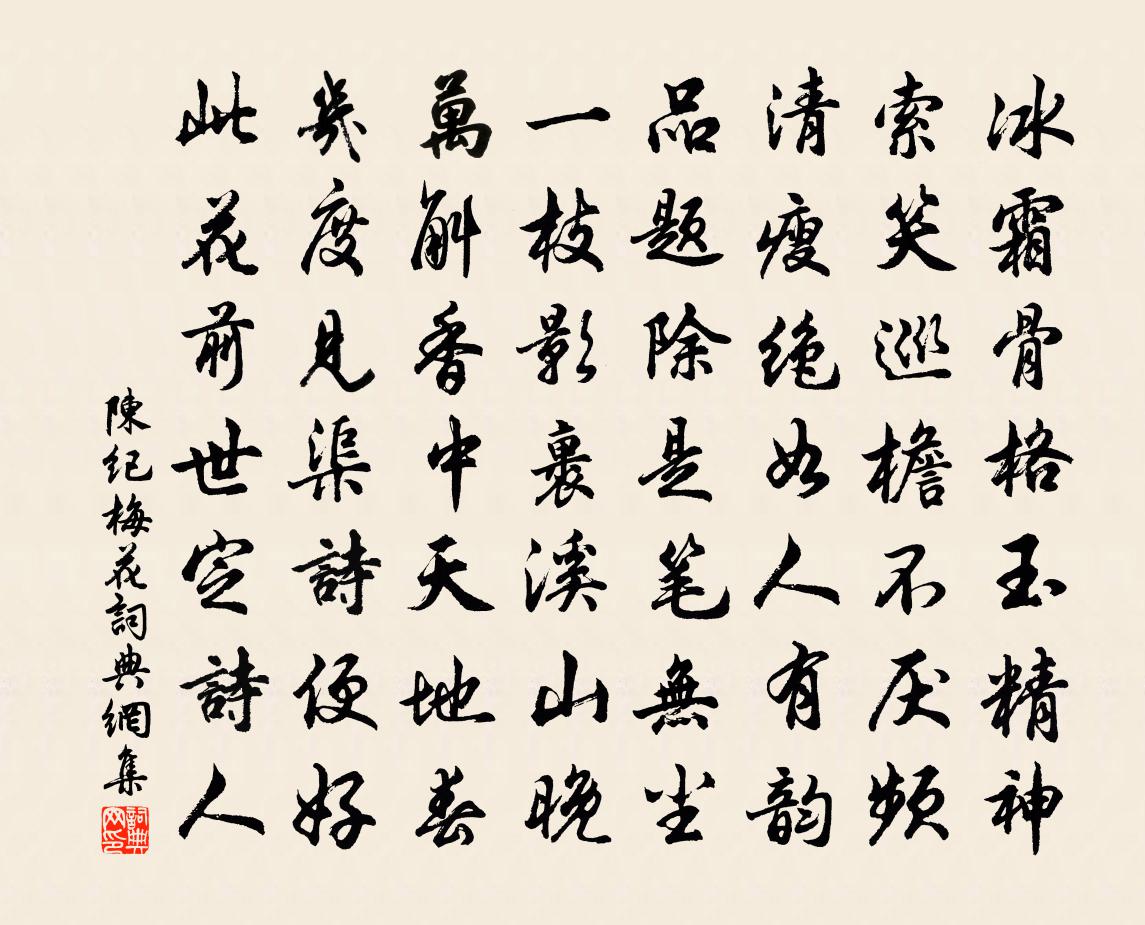 冰霜骨格玉精神
索笑巡檐不厌頻
清瘦絶如人有韵
品題除是笔無尘
一枝影裏溪山晚
萬斛香中天地春
幾度見渠詩便好
此花前世定詩人
陳紀梅花詞典網集
詞典
网印